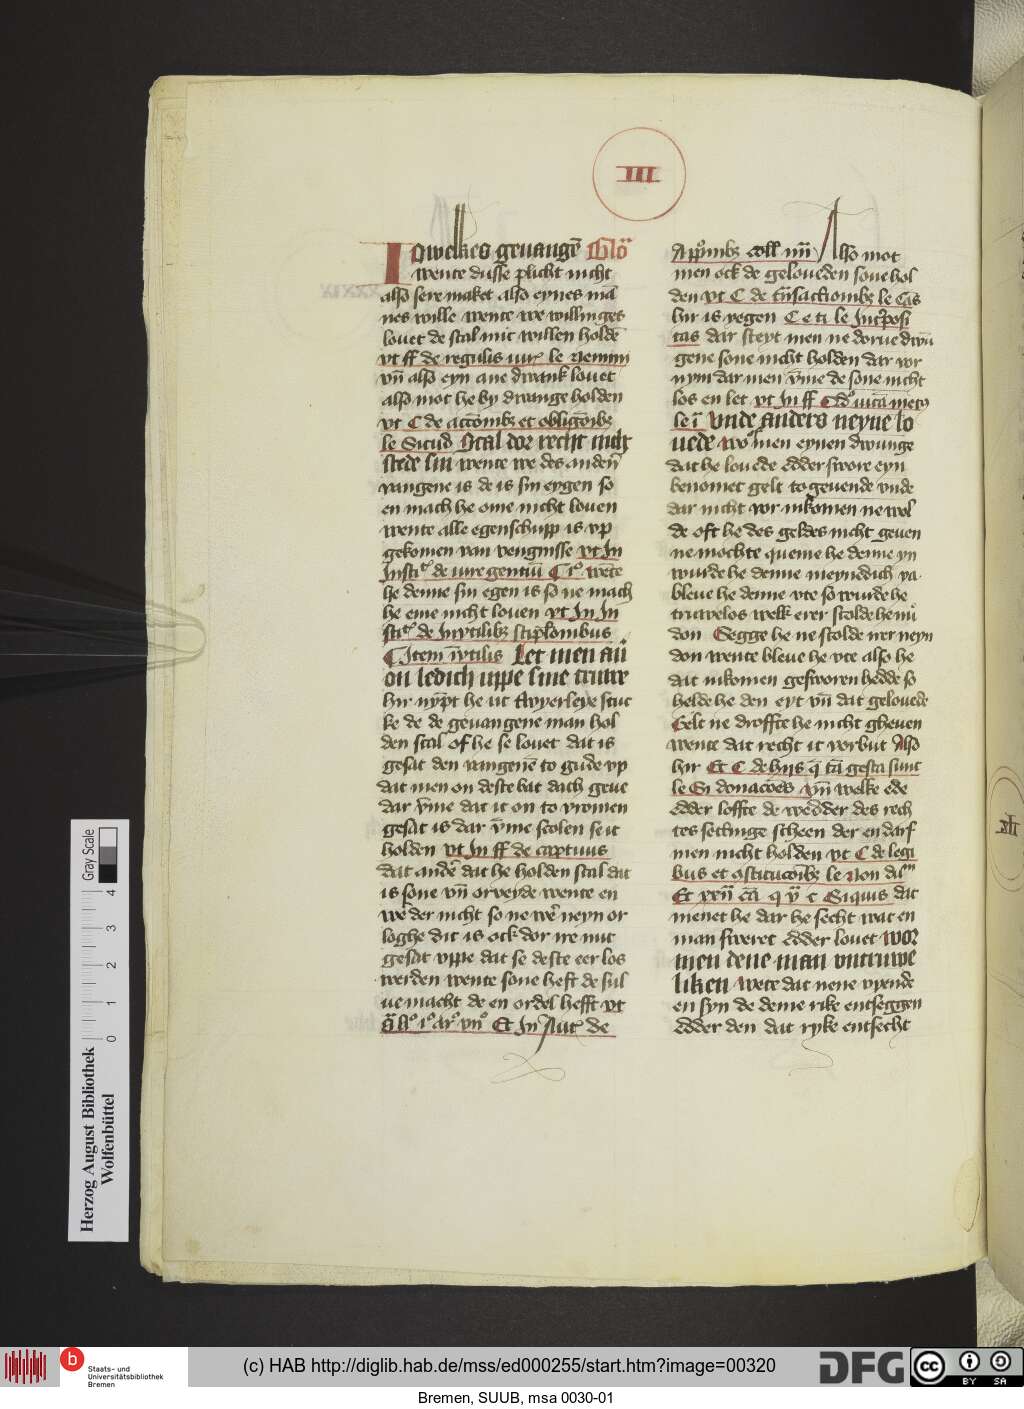 III
Iowelkes geuangē Glo
wente dusse plicht nicht
also sere maket also eynes mā
nes wille wente we willinges
louet de scal mit willen holdē
vt ff de regulis iur le nemini
vn̄ also eyn ane dwank louet
also mot he by dwange holden
vt C de actōnibꝫ et obligōibꝫ
le Sicud Scal dor recht nicht
stede sin wente we des andern̄
vangene is de is sin eygen so
en mach he ome nicht louen
wente alle egenschupp is vp
gekomen van vengnisse vt In
Instit de iure gentiū C i wēte
he denne sin egen is so ne mach
he eme nicht louen vt In In
stit de Invtilibꝫ stiplōnibus
C Item īvtilis Let men au
on ledich uppe sine truwe
hir nympt he ut twyerleye stuc
ke de de geuangene man hol
den scal of he se louet dat is
gesat den vangenē to gude vp
dat men on deste bat dach geue
dar v̄me dat it on to vromen
gesat is dar v̄me scolen seit
holden vt In ff de captiuus
dat ander dat he holden scal dat
is sone vn̄ orveyde wente en
weder nicht so ne wer neyn or
loghe dit is ock dor ire nut
gesat vppe dat se deste eer los
werden wente sone heft de sul
ue macht de en ordel hefft vt
Et In Aut de
Also mot
men ock de geloueden sone hol
den vt C de tn̄sactionibꝫ le Cās
hir is yegen C e ti le Int̄posi
tas dar steyt men ne dorue dwū
gene sone nicht holden dar vor
nym dar men v̄me de sone nicht
los en let vt In ff
le i Vnde anders neyne lo
uede wor men eynen dwunge
dat he louede edder swore eyn
benomet gelt to geuende vnde
dar nicht vor inkomen ne wol
de oft he des geldes nicht geuen
ne mochte queme he denne yn
wurde he denne meyneidich va
bleue he denne vte so wurde he
truwelos welk erer scolde he nu
don Segge he ne scolde ner neyn
don wente bleue he vte also he
dat inkomen gesworen hedde so
helde he den eyt vn̄ dat gelouede
Gelt ne droffte he nicht gheuen
wente dat recht it vorbut Also
hir Et C de hijs q̄ tā gesta sunt
le Si donacōēs vn̄ welke ede
edder loffte de wedder des rech
tes settinge scheen der en darf
men nicht holden vt C de legi
bus et ɔstitucōibꝫ le non du
Et xxij cā q v c Siquis dat
menet he dar he secht wat en
man sweret edder louet wor
men dene man vntruwe
liken wete dat nene vyende
en syn de deme rike entseggen
edder den dat ryke entsecht
Herzog August Bibliothek
Wolfenbüttel
0 1 2 3 4
Gray Scale
b
Staats- und
Universitätsbibliothek
Bremen
(c) HAB http://diglib.hab.de/mss/ed000255/start.htm?image=00320
DFG
cc BY SA
Bremen, SUUB, msa 0030-01